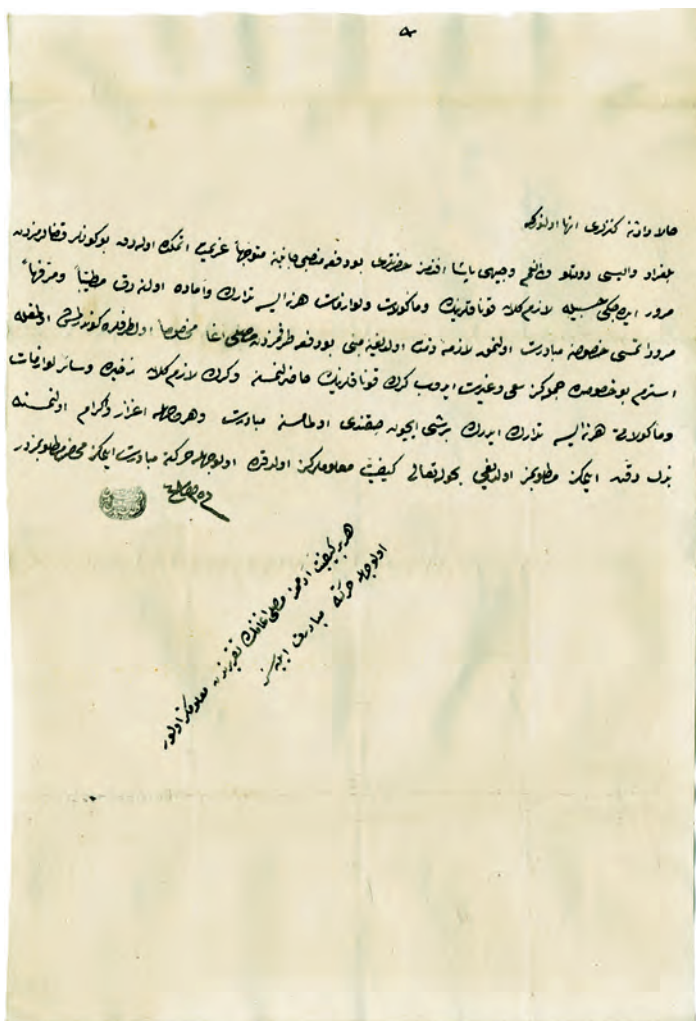 بلغراد والیسی دولتلو وجیهی پاشا افندمز حضرتلری بو دفعه منصبی جانبنه متوجهاً عزیمت ایتمك اوله رق بو كونلر قضاومزدن
مرور ایده جكی حسبیله لازم كلان قوناقلرینك ومأكولات ولوازمات هر نه ایسه تدارك وآماده اوله رق مطیباً ومرفهاً
مرور ایتمسی خصوصنه مبادرت اولنمق لازمه دن اولدیغنه مبنی بو دفعه طرفمزدن مصلی اغا مخصوصاً اولطرفلره كوندرلمش اولمغله
استرم بو خصوصه جملكز سعی وغیرت ایدوب كرك قوناقلرینك حاضرلنمسنه وكرك لازم كلان ذخیره وسائر لوازمات
ومأكولاتی هر نه ایسه تدارك ایدرك برشی ایچون صقندی اولماسنه مبادرت وهر وجهله اعزاز واكرام اولنمسنه
بذل دقت ایتمكز مطلوبمز اولدیغی بحوله تعالی كیفیت معلومكز اولدقده اولوجهله حركته مبادرت ایتمكز محضر مطلوبمزدر
هر بر كیفیت آدممز مصلی اغانك تقریرندن معلومكز اولور
اولوجهله حركته مبادرت ایده سز